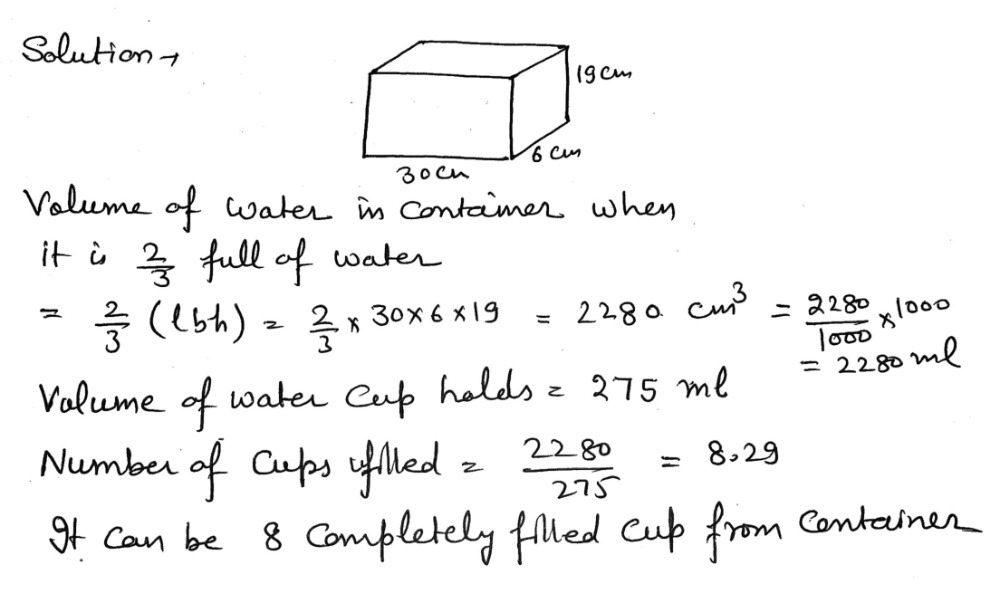 Solution →
19 cm
6 cm
30 cm
Volume of water in Container when
it is 2/3 full of water
= 2/3 (lbh) = 2/3 × 30×6×19 = 2280 cm³ = 2280/1000 ×1000
= 2280 ml
Volume of water Cup holds = 275 ml
Number of Cups filled = 2280/275 = 8.29
It Can be 8 Completely filled Cup from Container